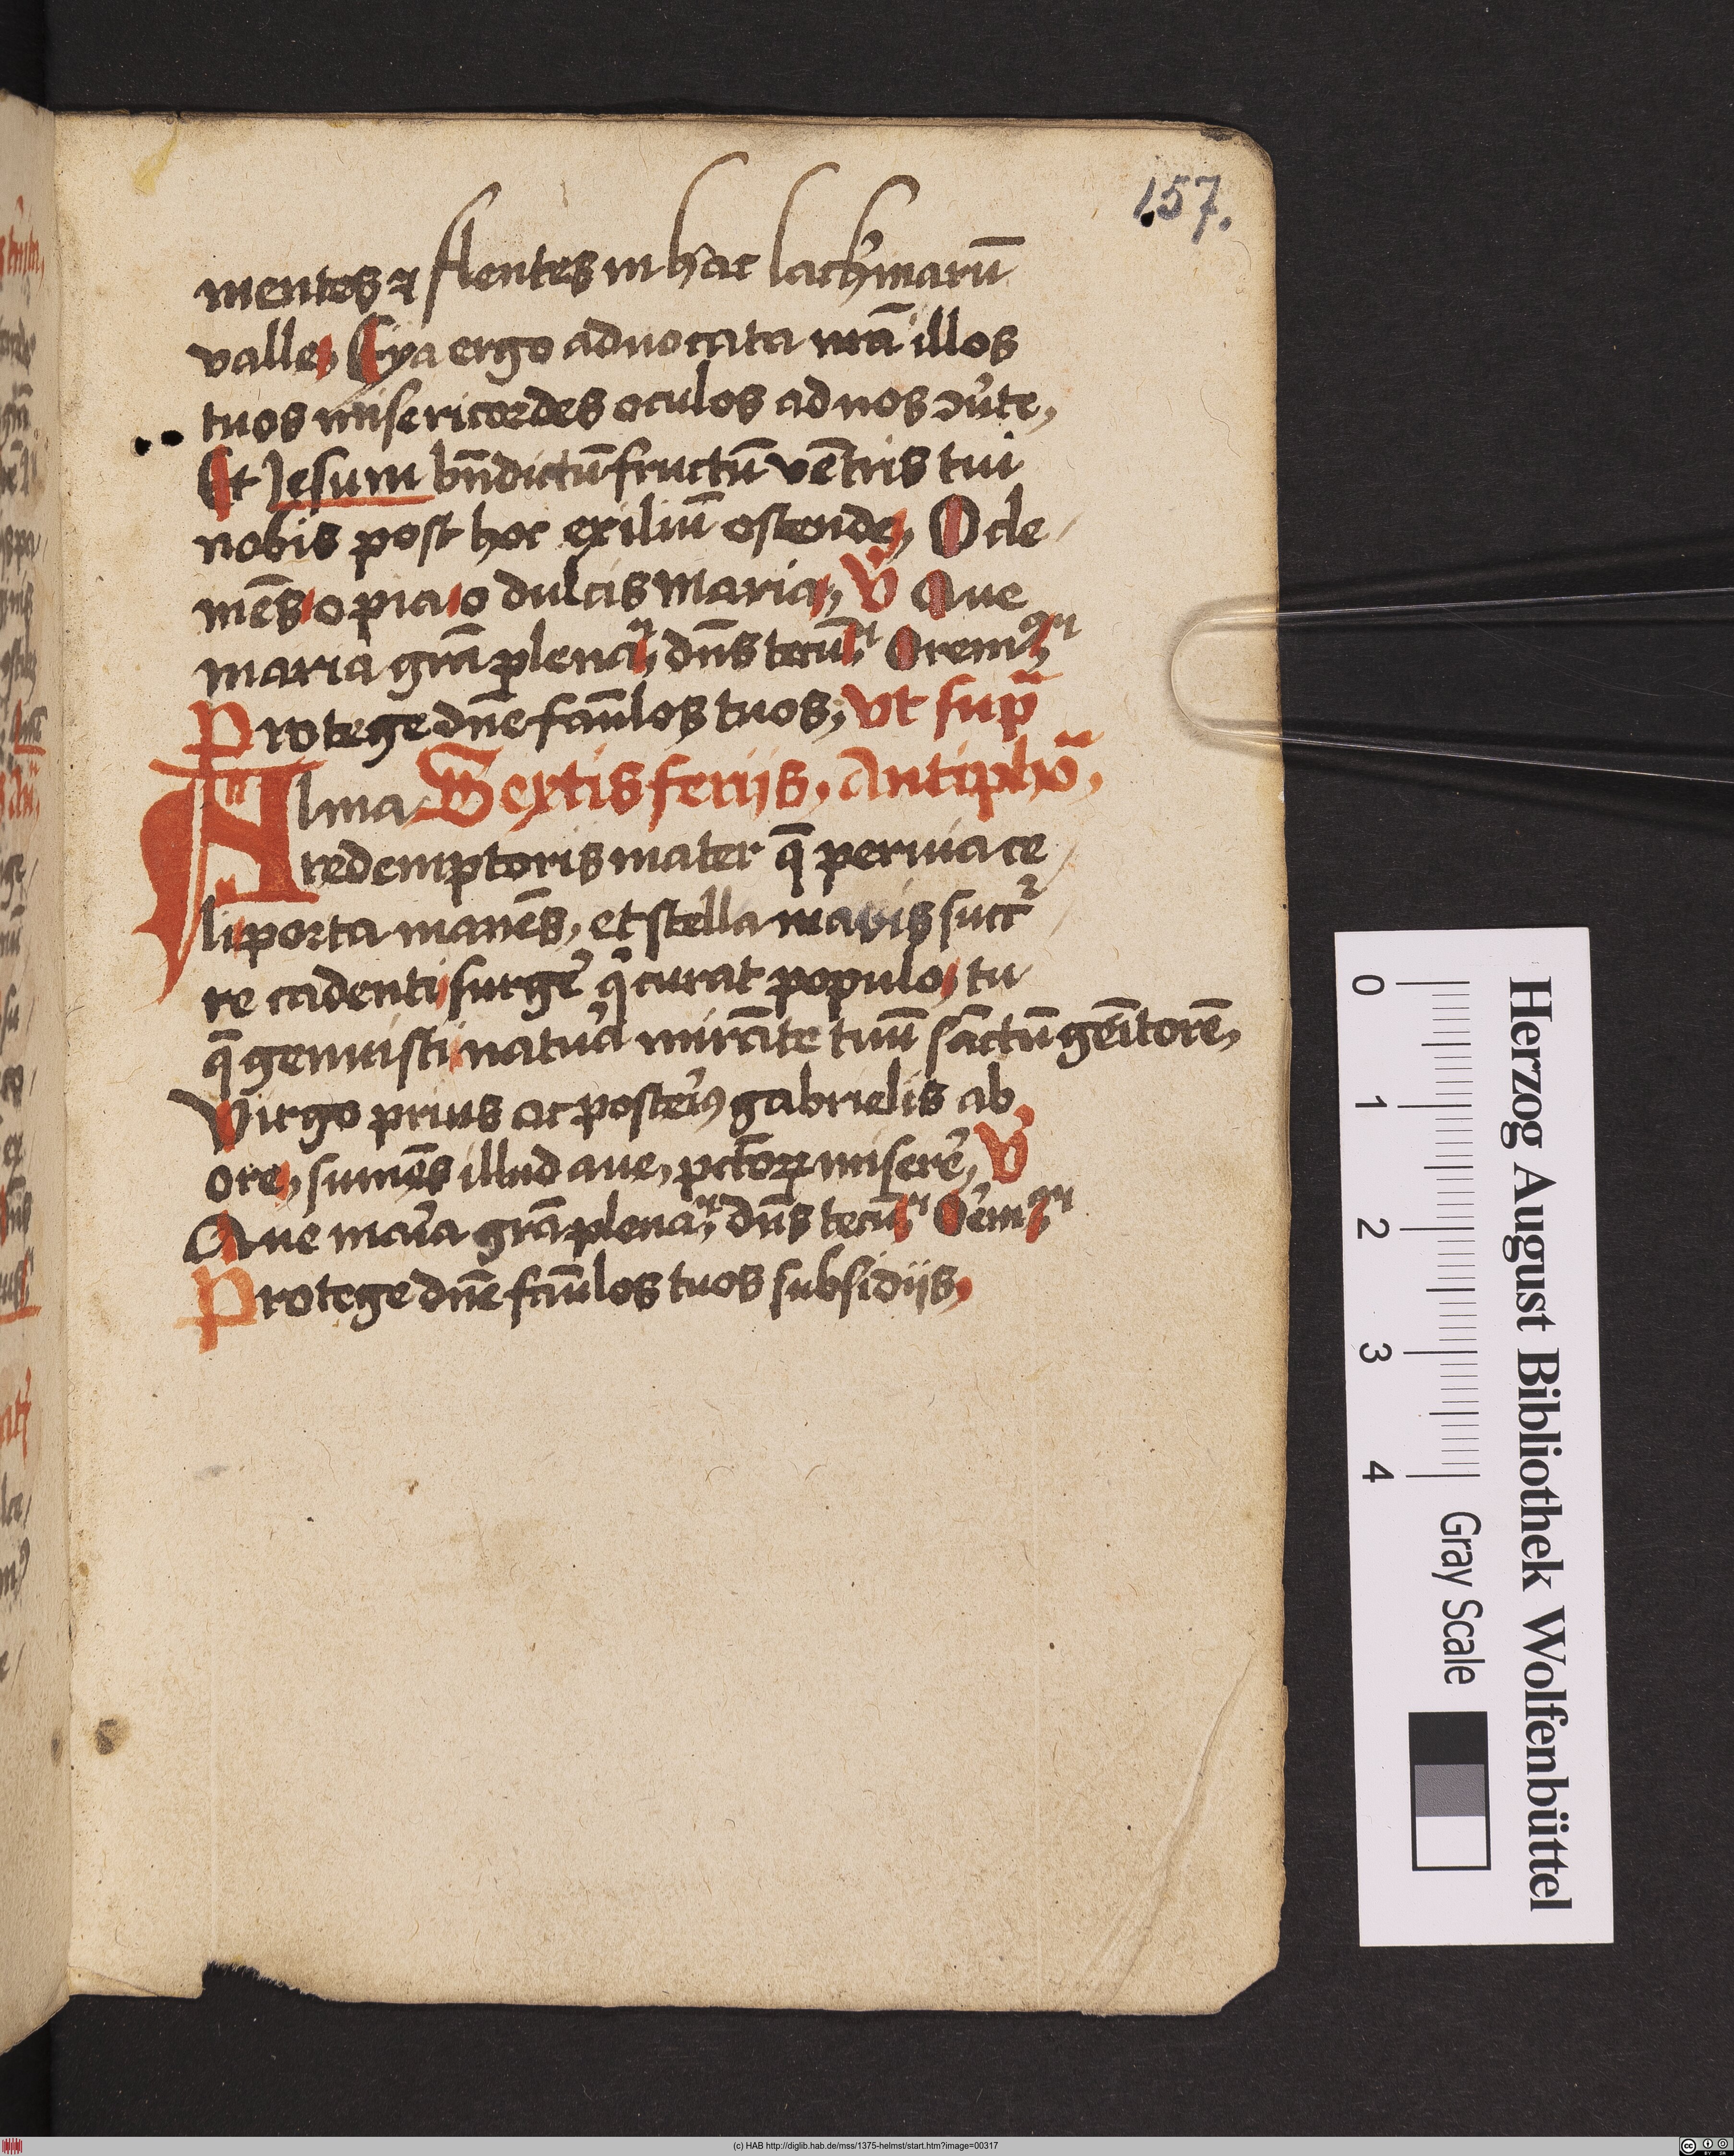 157.
mentes ⁊ flentes in hac lacrimarū
valle, Eya ergo aduocata nr̄a illos
tuos misericordes oculos ad nos ↄu̾te,
Et Jesum bn̄dictū fructū vētris tui
nobis post hoc exiliū ostende, O cle/
mēs, o pia, o dulcis Maria, V̇ Aue
maria gr̄a plena, dn̄s tecū Orem9
Protege dn̄e famlos tuos, vt sup̄
Alma Sextis ferijs, Antiphō,
redemptoris mater q̄ peruia ce/
li porta manēs, et stella maris succr̾/
re cadenti surger̾ qͥ curat populo, tu
q̄ genuisti natᵃ mirāte tuū sāctū gēitorē,
Virgo prius ac posteri9 gabrielis ab
ore, sumēs illud aue, pctoꝝ miserē, V̇
Aue maͥa gr̄a plena, dn̄s tecū Or̾em9
Protege dn̄e famlos tuos subsidijs,
Herzog August Bibliothek Wolfenbüttel
0 1 2 3 4 Gray Scale
(c) HAB http://diglib.hab.de/mss/1375-helmst/start.htm?image=00317